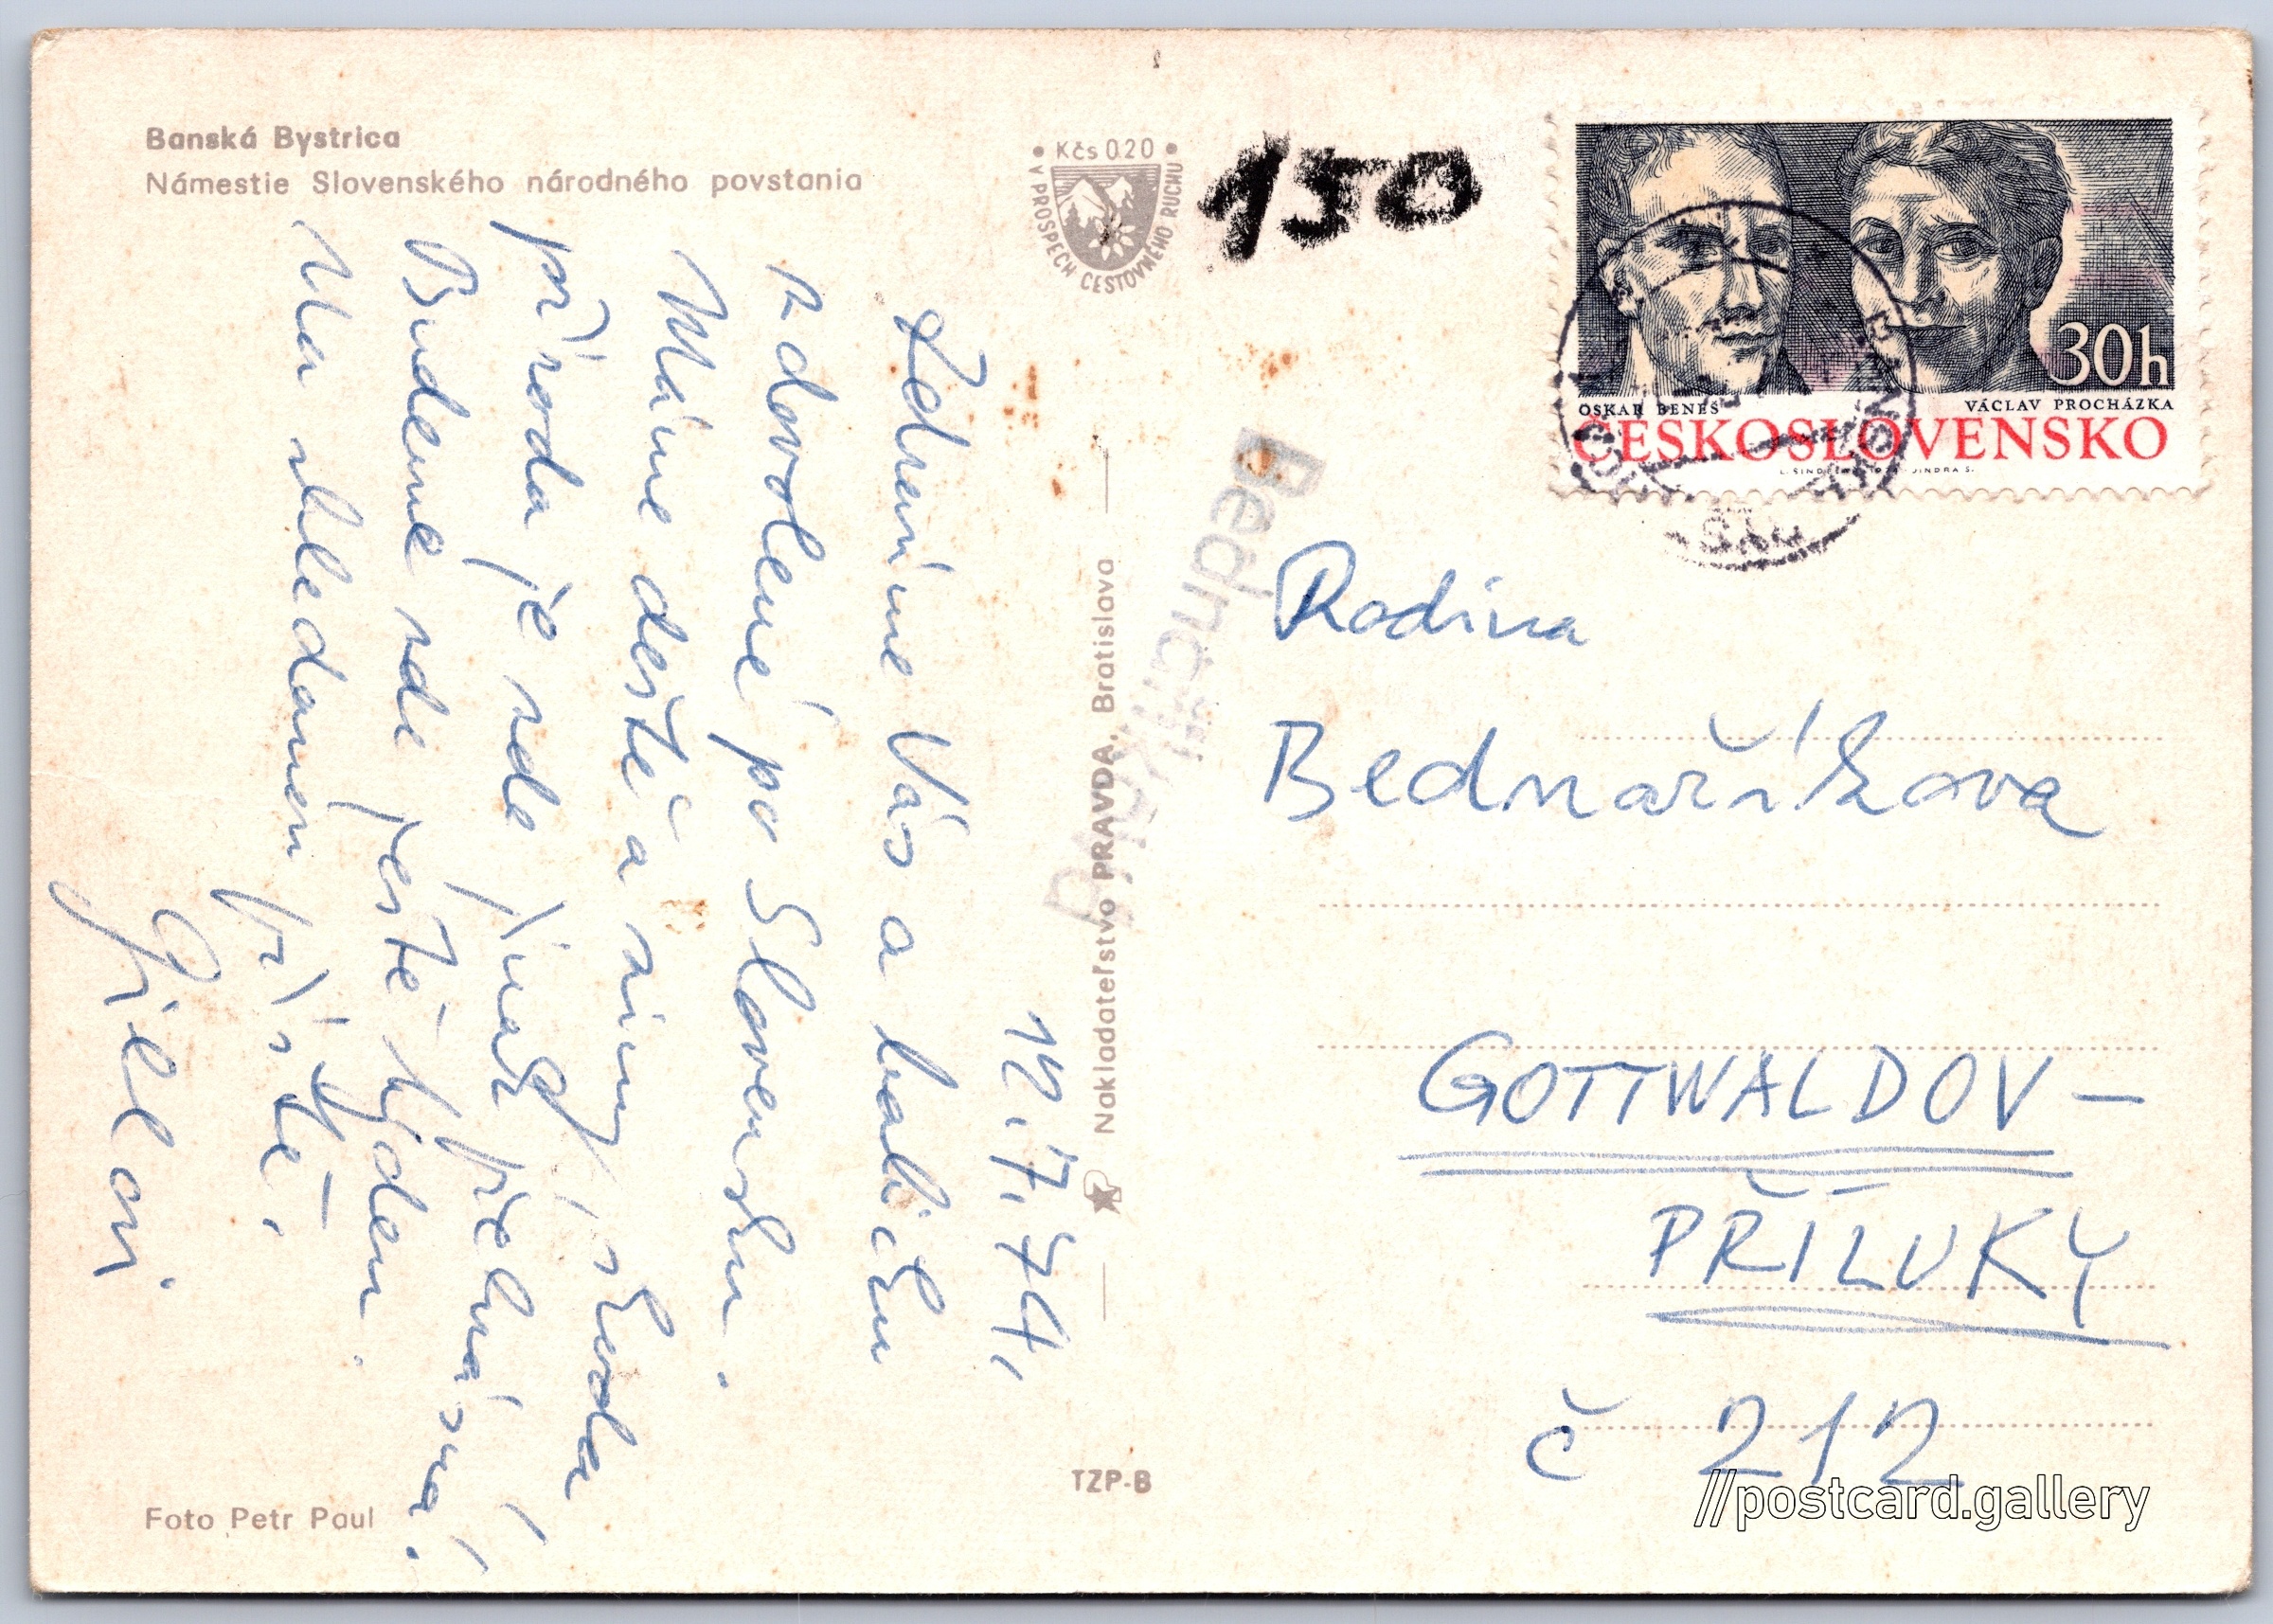 Banská Bystrica
Námestie Slovenského národného povstania
• Kčs 0.20 •
V PROSPECH CESTOVNÉHO RUCHU
150
30h
OSKAR BENEŠ VÁCLAV PROCHÁZKA
ČESKOSLOVENSKO
12.7.74.
Zdravíme Vás a babičku
z dovolené po Slovensku.
Máme deště a zimy, škoda
příroda je zde jinak překrásná.
Budeme zde ještě týden.
Na shledanou příště.
Nakladateľstvo PRAVDA, Bratislava
Rodina
Bednaříkova
GOTTWALDOV –
PŘÍLUKY
č 212
TZP-B
Foto Petr Paul
//postcard.gallery